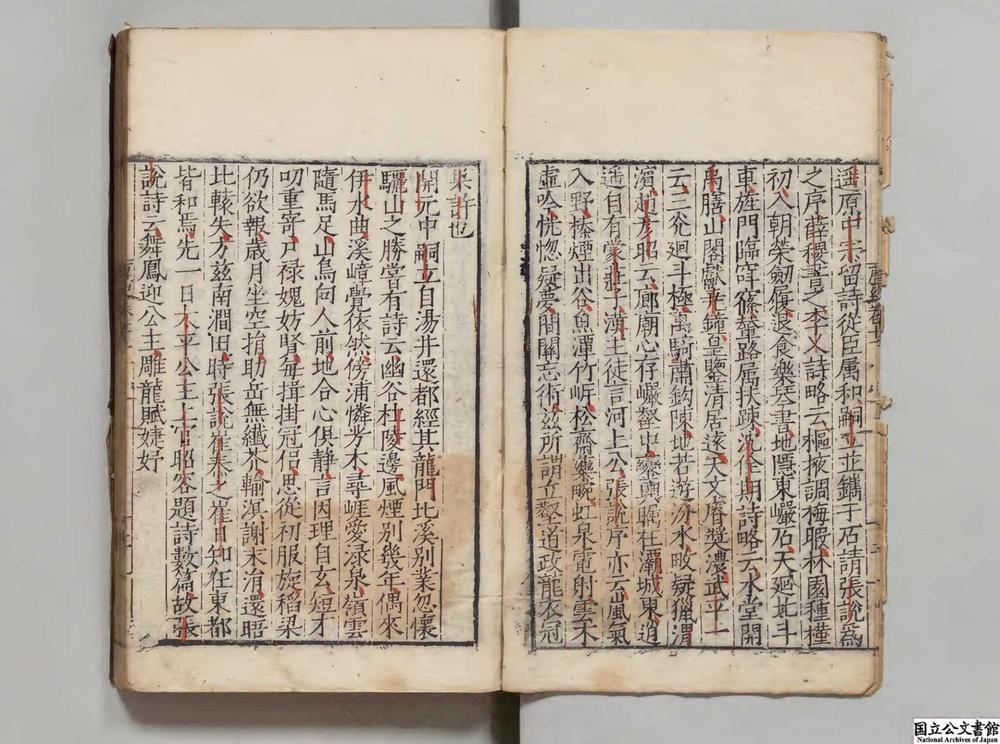 遥原中宗留詩從臣屬和嗣立並鐫于石請張說爲
之序薛稷書之李乂詩略云樞掖調梅暇林園種槿
初入朝榮劒履退食樂琴書地隱東巖石天迴北斗
車旌門臨窅窱輦路屬扶疎沈佺期詩略云水堂開
禹膳山閣獻垂鐘皇鑒清居遠天文睿奬濃武平一
云三光迴斗極萬騎肅鈎陳地若游汾水畋疑獵渭
濵趙彦昭云廊廟心存巖壑中鑾輿矚在灞城東逍
遥自有蒙莊子漢主徒言河上公張說序亦云嵐氣
入野榛煙出谷魚潭竹㟁松齋藥畹虹泉電射雲木
虚吟恍惚疑夢間關忘術兹所謂丘壑夔龍衣冠
巢許也
開元中嗣立自湯井還都經其龍門北溪別業忽懷
驪山之勝嘗有詩云幽谷杜陵邊風煙別幾年偶來
伊水曲溪嶂覺依然傍浦憐芳木尋崖愛淥泉嶺雲
隨馬足山鳥向人前地合心俱静言因理自玄短才
叨重寄尸禄媿妨賢每揖掛冠侣思從初服旋稻粱
仍欲報歲月坐空捐助岳無纖芥輸溟謝末涓還晤
比轅失方兹南澗田時張說崔泰之崔日知在東都
皆和焉先一日太平公主上官昭容題詩數篇故張
說詩云舞鳳迎公主雕龍賦婕妤
国立公文書館
National Archives of Japan